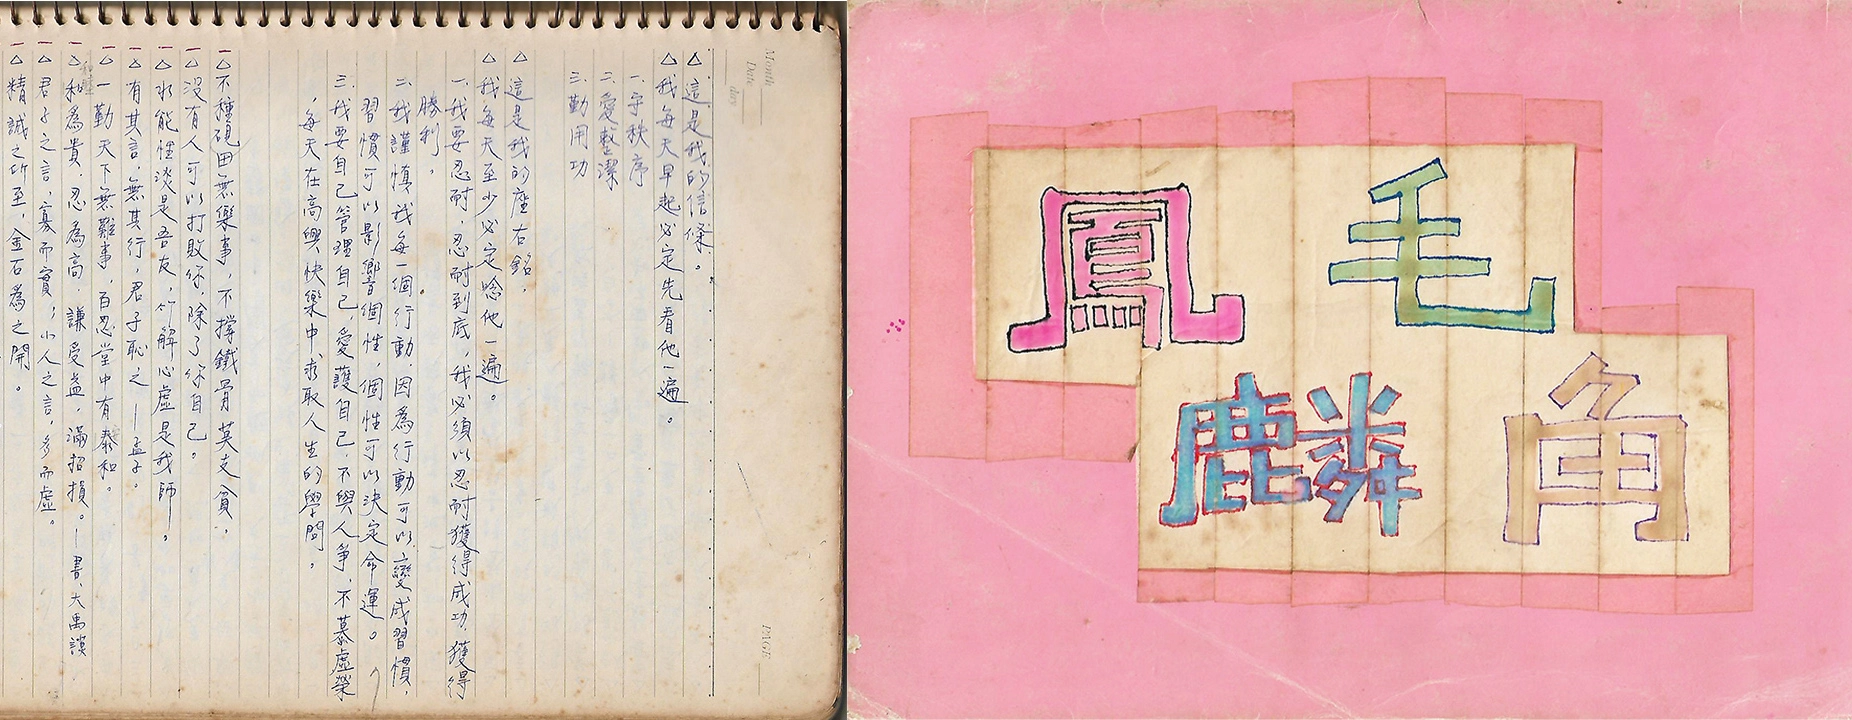 Month
Date
PAGE
△這是我的信條。
△我每天早起必定先看他一遍。
一.守秩序
二.愛整潔
三.勤用功
△這是我的座右銘，
△我每天至少必定唸他一遍。
一.我要忍耐，忍耐到底，我必須以忍耐獲得成功，獲得
勝利。
二.我謹慎我每一個行動，因為行動可以變成習慣，
習慣可以影響個性，個性可以決定命運。
三.我要自己管理自己，愛護自己，不與人爭，不慕虛榮
，每天在高興快樂中求取人生的學問。
△不種硯田無樂事，不撐鐵骨莫支貧。
△沒有人可以打敗你，除了你自己。
△水能性淡是吾友，竹解心虛是我師。
△有其言，無其行，君子恥之—孟子。
△一勤天下無難事，百忍堂中有泰和。
△和為貴，忍為高，謙受益，滿招損。—書、大禹謨
△君子之言，寡而實；小人之言，多而虛。
△精誠之所至，金石為之開。
鳳毛
麟角